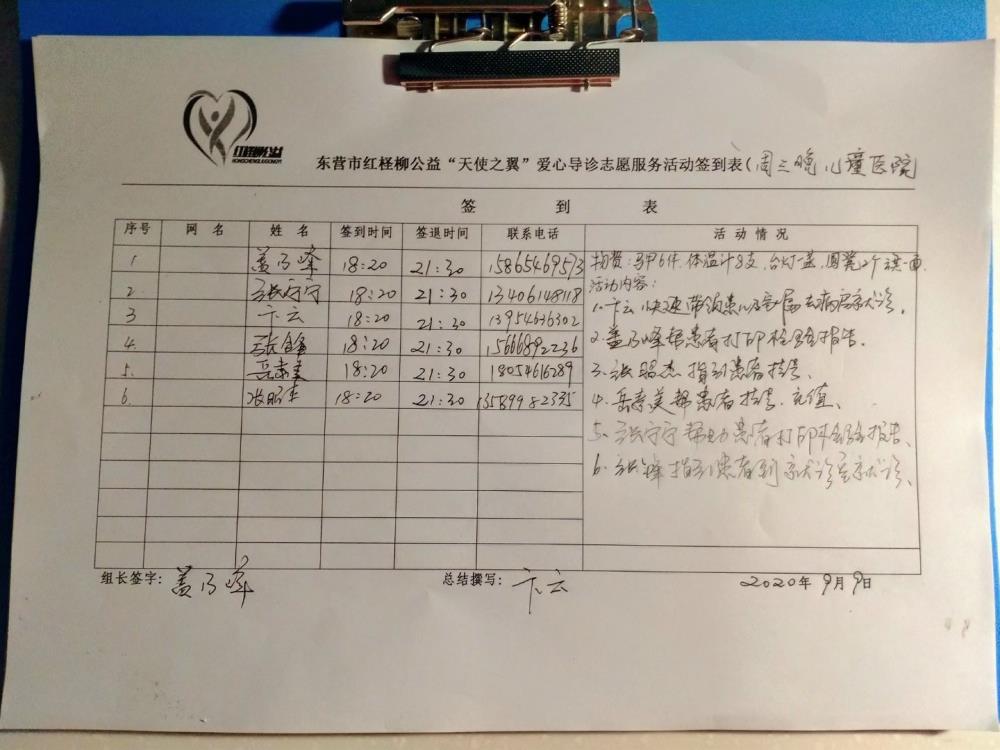 红柽柳公益
HONGCHENGLIUGONGYI
东营市红柽柳公益“天使之翼”爱心导诊志愿服务活动签到表(周三晚儿童医院
签 到 表
序号 网 名 姓 名 签到时间 签退时间 联系电话 活 动 情 况
1 盖乃峰 18:20 21:30 15865469513 物资:马甲6件.体温计8支,台灯一盏,圆凳2个
活动内容:
2. 张宁宁 18:20 21:30 13406148118
1.卞云快速带领患儿及家属去病房就诊.
3 卞云 18:20 21:30 13954636302
2.盖乃峰帮患者打印检验报告.
4. 张锋 18:20 21:30 15666892236
3.张昭杰指引患者挂号.
5. 岳素美 18:20 21:30 18054616289
4.岳素美帮患者挂号.充值、
6. 张昭杰 18:20 21:30 13589982335
5、张宁宁帮助患者打印检验报告、
6、张锋指引患者到就诊室就诊、
组长签字: 盖乃峰 总结撰写: 卞云 2020年9月9日